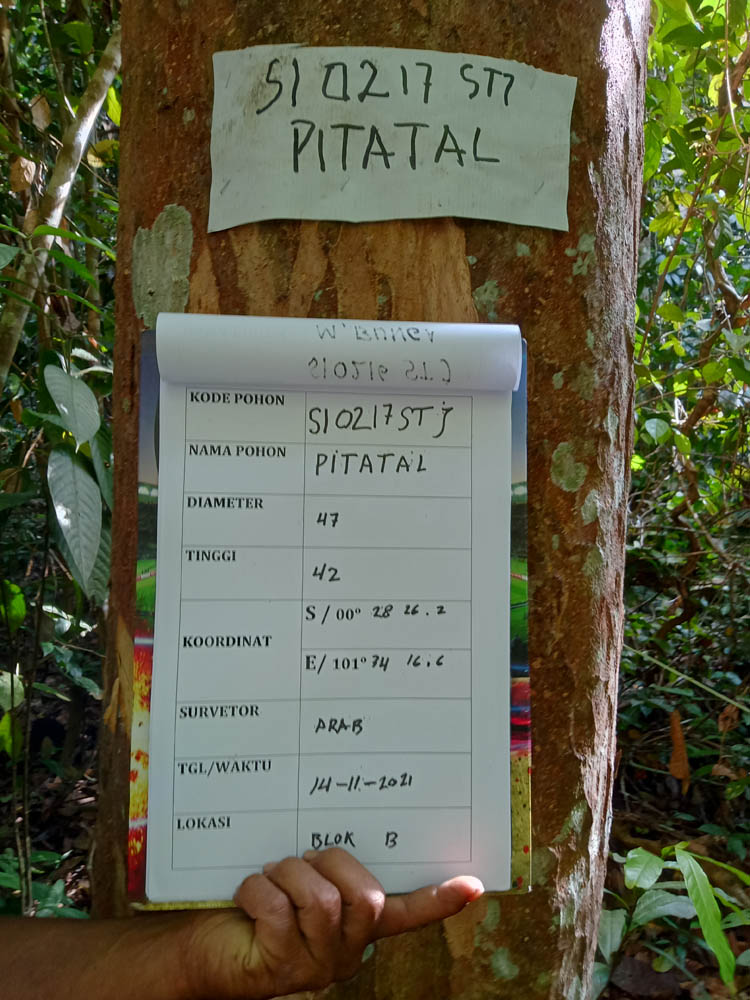 SI 0217 STJ
PITATAL
KODE POHON SI0217STJ
NAMA POHON PITATAL
DIAMETER 47
TINGGI 42
KOORDINAT S / 00° 28 26.2
E/ 101° 34 16.6
SURVETOR ARAB
TGL/WAKTU 14-11-2021
LOKASI BLOK B